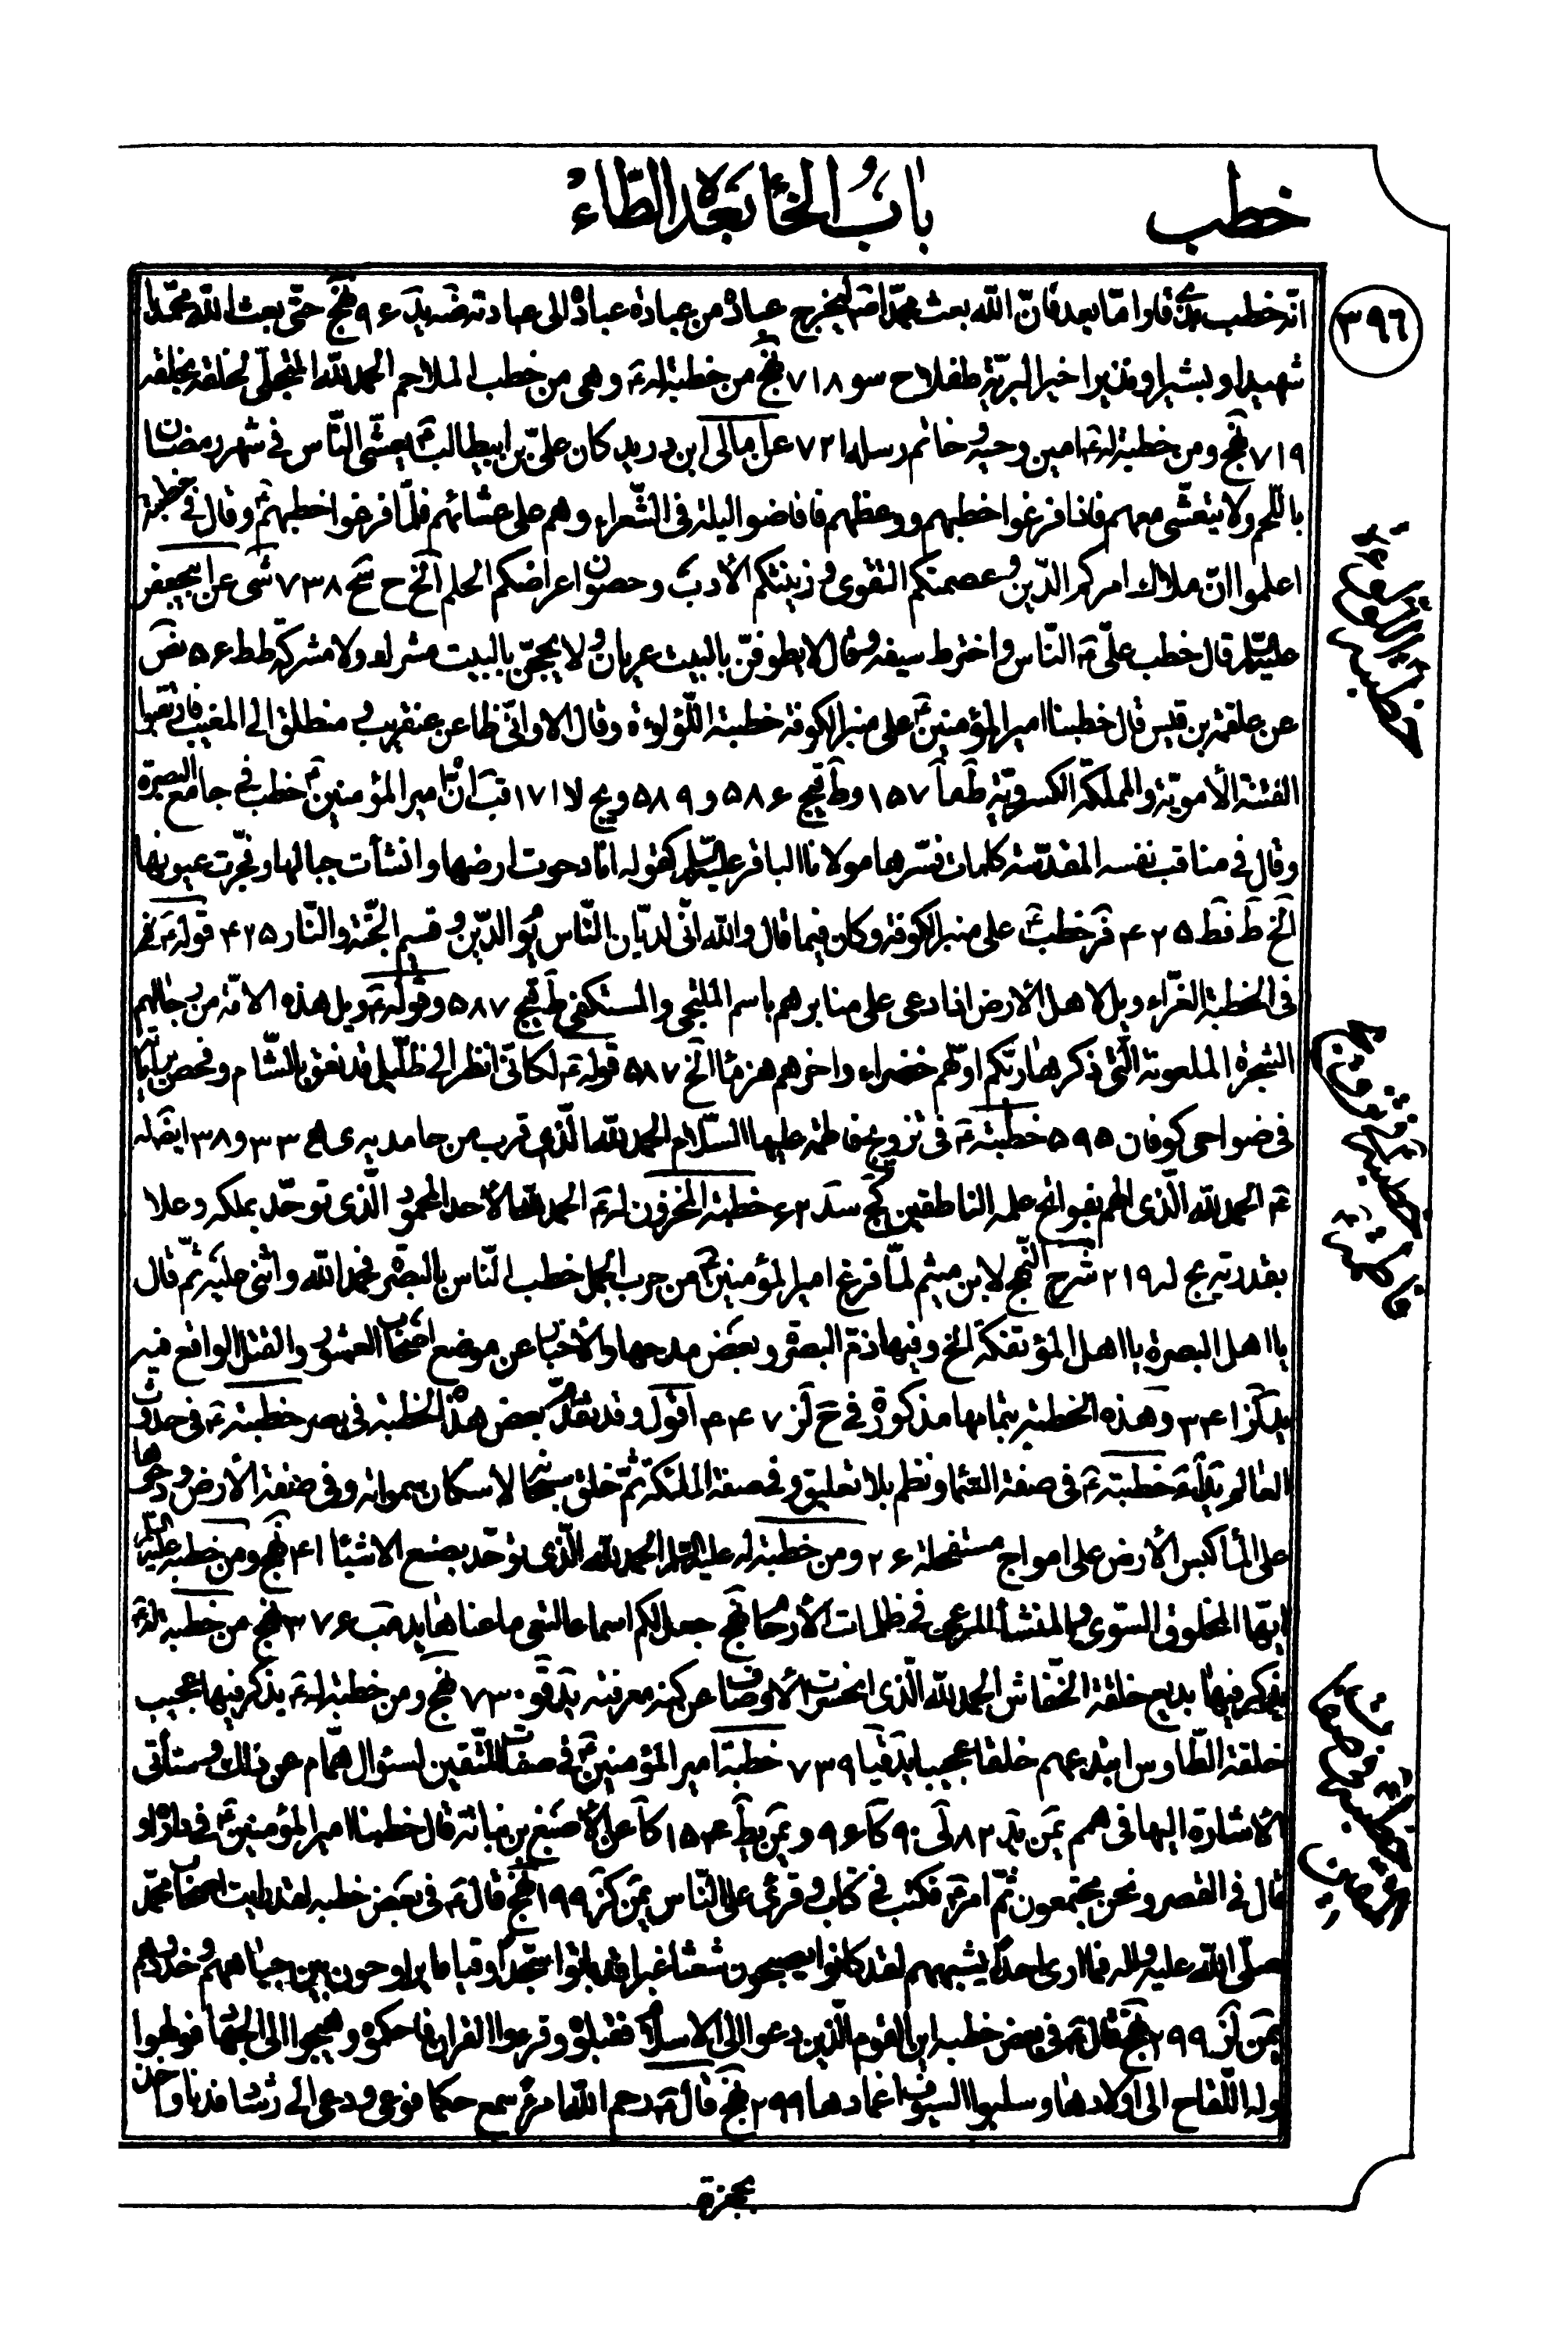 خطب
باب الخاء بعده الطاء
٣٩٦
انّه خطب فاوا مّا بعد فانّ اللّه بعث محمّداً ليخرج عباده من عبادة عباده الى عبادته ضه يد ٩٦ نهج حتّى بعث اللّه محمّداً
شهيداً وبشيراً ونذيراً خير البريّة طفلا ح سو ٧١٨ نهج من خطبة له ع وهى من خطب الملاحم الحمد للّه المتجلّى لخلقه بخلقه
٧١٩ نهج ومن خطبة له ع امين وحيه وخاتم رسله ٧٢١ عن امالى ابن دريد كان علىّ بن ابيطالب ع يعشّى النّاس فى شهر رمضان
باللّحم ولا يتعشّى معهم فاذا فرغوا خطبهم ووعظهم فافاضوا ليلة فى الشّعراء وهم على عشائهم فلمّا فرغوا خطبهم ع وقال فى خطبته
اعلموا انّ ملاك امركم الدّين وعصمتكم التقوى وزينتكم الأدب وحصون اعراضكم الحلم الخ ح لح ٧٣٨ شى عن ابيجعفر
عليه السلام قال خطب علىّ ع النّاس واخترط سيفه وقال لا يطوفنّ بالبيت عريان ولا يحجّنّ بالبيت مشرك ولا مشركة ط ط ٥٦ نص
عن علقمة بن قيس قال خطبنا امير المؤمنين ع على منبر الكوفة خطبة اللّؤلؤة وقال الا وانّى ظاعن عن قريب ومنطلق الى المغيب فارتقبوا
الفتنة الأمويّة والمملكة الكسرويّة ط مأ ١٥٧ وط قيج ٥٨٦ و ٥٨٩ ويج لا ١٧١ قب انّ امير المؤمنين ع خطب فى جامع البصرة
وقال فى مناقب نفسه المقدّسة كلمات فسّرها مولانا الباقر عليه السلام كقوله انا دحوت ارضها وانشأت جبالها وفجّرت عيونها
الخ ط فط ٤٢٥ فر خطب ع على منبر الكوفة وكان فيما قال واللّه انّى لديّان النّاس يوم الدّين وقسيم الجنّة والنّار ٤٢٥ قوله ع
فى الخطبة الغرّاء ويل لاهل الأرض اذا دعى على منابرهم باسم الملتجى والمستكفى ط قيج ٥٨٧ وقوله ع ويل هذه الامّة من رجالهم
الشجرة الملعونة الّتى ذكرها ربّكم اوّلهم خضراء واخرهم هزماء الخ ٥٨٧ قوله ع لكانّى انظر الى ظلّيل قد نعق بالشّام وفحص براياته
فى ضواحى كوفان ٥٩٥ خطبته ع فى تزويج فاطمة عليها السّلام الحمد للّه الّذى قرب من حامديه ى ه ٣٣ و ٣٨ ايضا له
ع الحمد للّه الّذى الهم بفواتح علمه الناطقين كج سد ٦٢ خطبة المخزون له ع الحمد للّه الأحد المحمود الّذى توحّد بملكه وعلا
بقدرته يج له ٢١٩ شرح النّهج لابن ميثم لمّا فرغ امير المؤمنين ع من حرب الجمل خطب النّاس بالبصرة فحمد اللّه واثنى عليه ثمّ قال
يا اهل البصرة يا اهل المؤتفكة الخ وفيها ذمّ البصرة وبعض مدحها والأخبار عن موضع اصحاب العشور والقتل الواقع فيه
يد كز ٣٤١ وهذه الخطبة بتمامها مذكورة فى ح لز ٤٤٧ اقول وقد تقدّم بعض هذه الخطبة فى بصر خطبته ع فى حدوث
العالم يد خطبته ع فى صفة السّماء ونظم بلا تعليق وفى صفة الملئكة ثمّ خلق سبحانه لاسكان سمواته وفى صفة الأرض ودحوها
على الماء كبس الأرض على امواج مستفحلة ٢٦ ومن خطبة له عليه السلام الحمد للّه الّذى توحّد بصنع الاشياء ٤١ نهج ومن خطبة له عليه السلام
ايّها المخلوق السّوى والمنشأ المرعى فى ظلمات الأرحام نهج جعل لكم اسماعا لتعى ما عناها يد مب ٣٧٦ نهج من خطبة له ع
يذكر فيها بديع خلقة الخفّاش الحمد للّه الّذى انحسرت الأوصاف عن كنه معرفته يد قو ٧٣٠ نهج ومن خطبة له ع يذكر فيها عجيب
خلقة الطّاوس ابتدعهم خلقا عجيبا يد قيا ٧٣٩ خطبة امير المؤمنين ع فى صفات المتّقين لسؤال همّام عن ذلك وستأتى
الأشارة اليها فى همم يمن يد ٨٣ لى ٩٠ كا ٩٦ ويمن يط ١٥٤ كا عن الأصبغ بن نباتة قال خطبنا امير المؤمنين ع فى داره او
قال فى القصر ونحن مجتمعون ثمّ امر ع فكتب فى كتاب وقرئ على النّاس يمن كز ١٩٩ نهج قال ع فى بعض خطبه لقد رايت اصحاب محمّد
صلّى اللّه عليه واله فما ارى احداً يشبههم لقد كانوا يصبحون شعثا غبرا قد باتوا سجّداً وقياما يراوحون بين جباههم وخدودهم
يمن لز ٢٩٩ نهج قال ع فى بعض خطبه اين القوم الّذين دعوا الى الاسلام فقبلوه وقرءوا القران فاحكموه وهيجوا الى الجهاد فولهوا
وله اللّقاح الى اولادها وسلبوا السيوف اغمادها ٢٩٩ نهج قال ع رحم اللّه امرءً سمع حكما فوعى ودعى الى رشاد فدنا واخذ
بحجزة